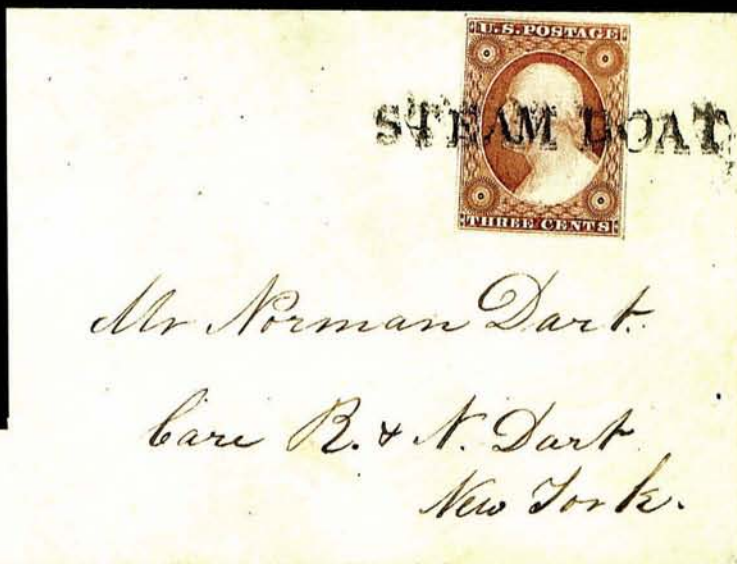 U.S. POSTAGE
STEAM BOAT
THREE CENTS
Mr Norman Dart.
Care R. & N. Dart
New York.